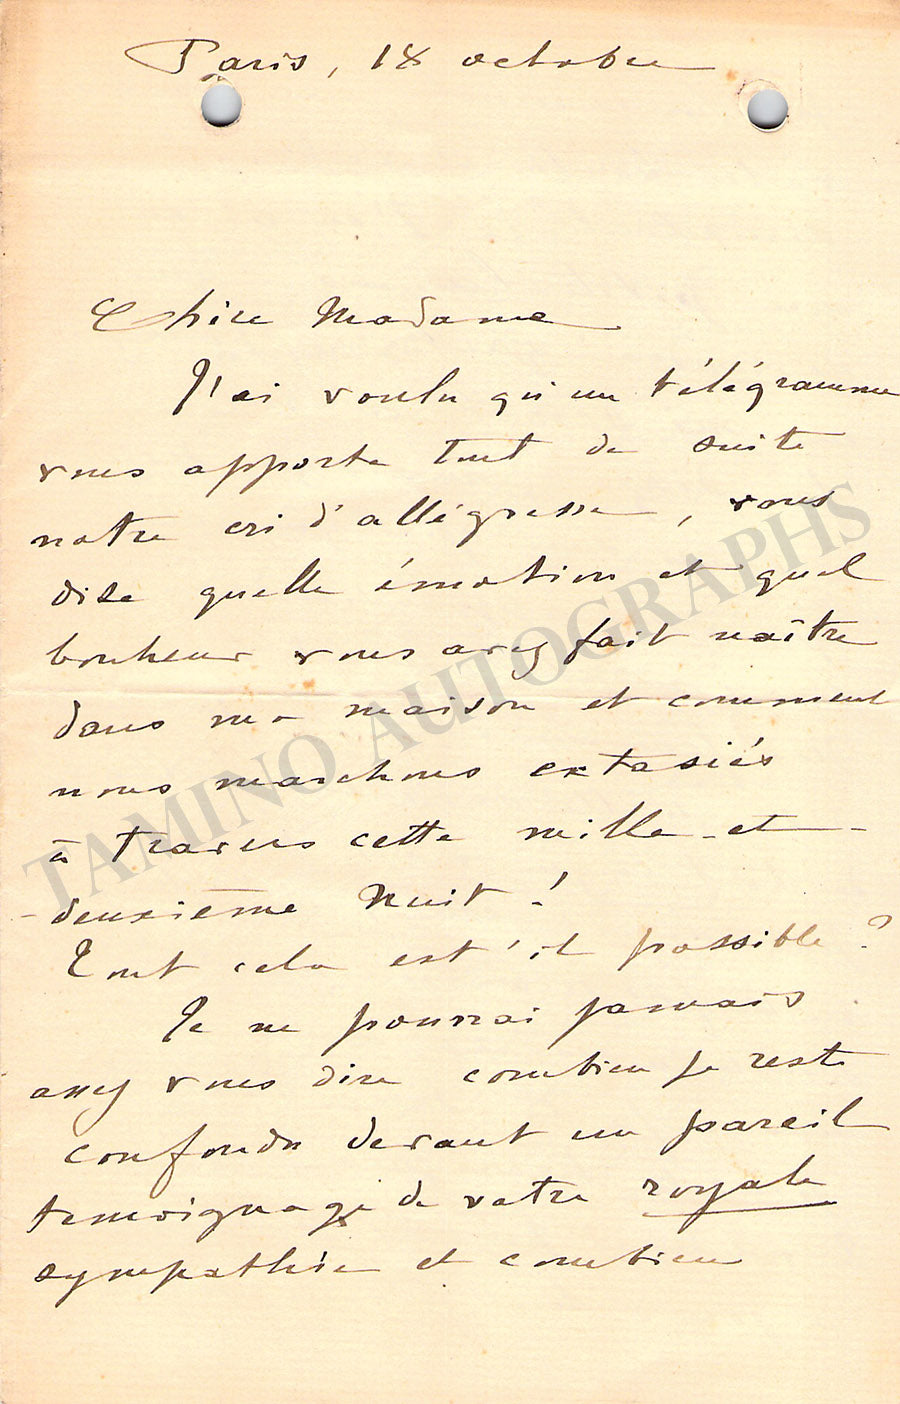 Paris, 18 octobre
Chère Madame
J'ai voulu qu'un télégramme
vous apporte tout de suite
notre cri d'allégresse, vous
dise quelle émotion et quel
bonheur vous avez fait naître
dans ma maison et comment
nous marchons extasiés
à travers cette mille-et-
-deuxième Nuit !
Tout cela est'il possible ?
Je ne pourrai jamais
assez vous dire combien je reste
confondu devant un pareil
temoignage de votre royale
sympathie et combien
TAMINO AUTOGRAPHS